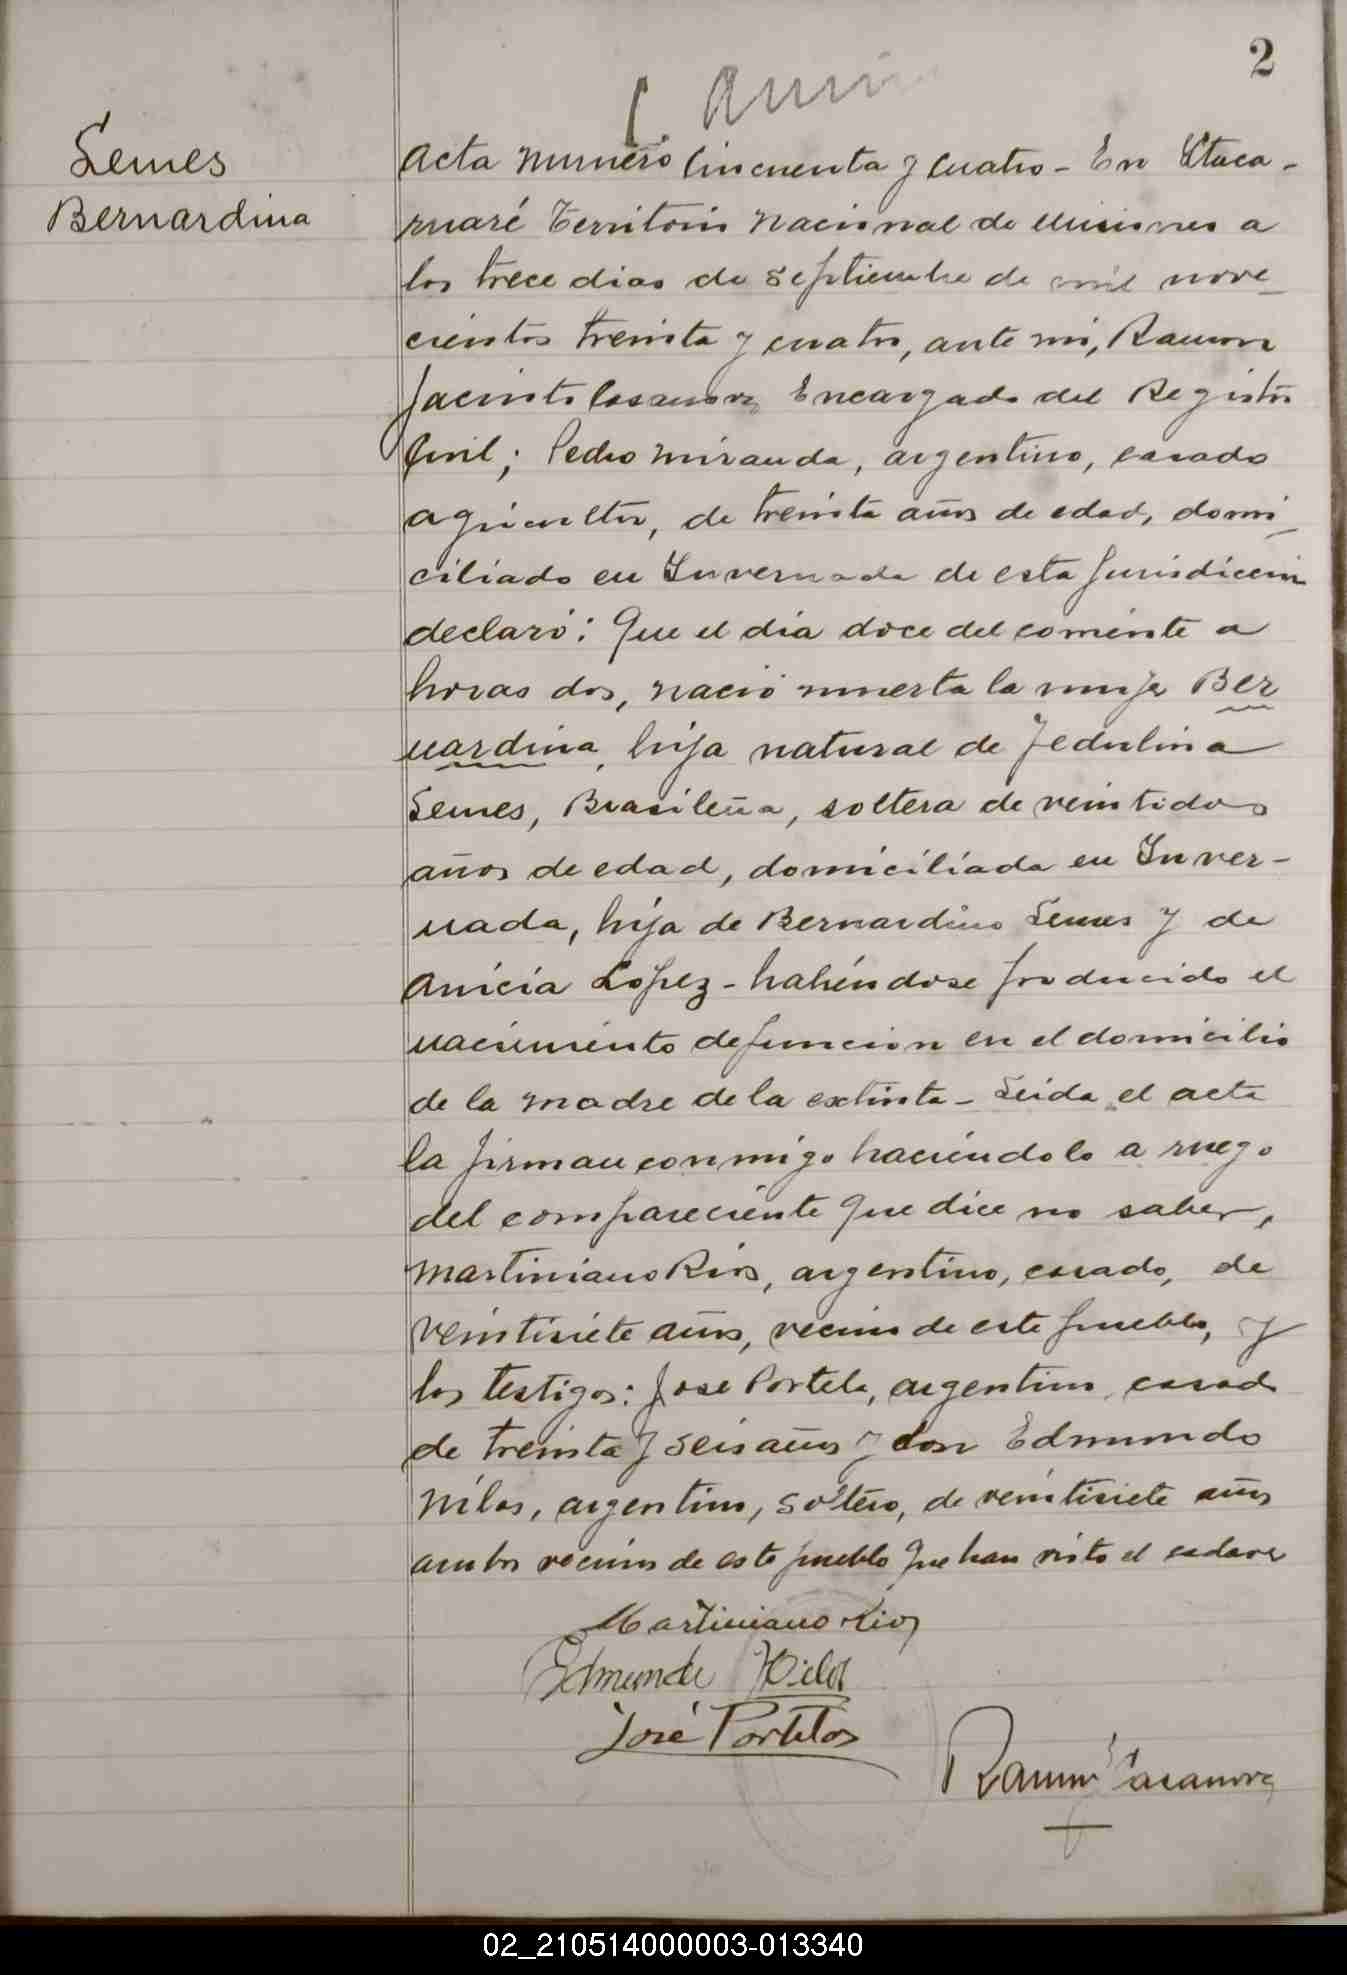 2
Lemes
Bernardina
Acta numero Cincuenta y cuatro - En Itaca-
ruaré Territorio Nacional de Misiones a
los trece dias de septiembre de mil nove-
cientos treinta y cuatro, ante mi, Ramon
Jacinto Casanova Encargado del Registro
Civil; Pedro Miranda, argentino, casado
agricultor, de treinta años de edad, domi-
ciliado en Invernada de esta Jurisdiccion
declaró: Que el dia doce del corriente a
horas dos, nació muerta la mujer Ber
nardina, hija natural de Jedulina
Lemes, Brasileña, soltera de veintidos
años de edad, domiciliada en Inver-
nada, hija de Bernardino Lemes y de
Anicia López - habiéndose producido el
nacimiento defuncion en el domicilio
de la madre de la extinta - Leida el acta
la firman conmigo haciéndolo a ruego
del compareciente que dice no saber,
Martiniano Rios, argentino, casado, de
veintisiete años, vecino de este pueblo, y
los testigos: Jose Portela, argentino, casado
de treinta y seis años y don Edmundo
Vilos, argentino, soltero, de veintisiete años
ambos vecinos de este pueblo que han visto el cadaver
Martiniano Rios
Edmundo
José Portelos
Ramon Casanova
02_210514000003-013340